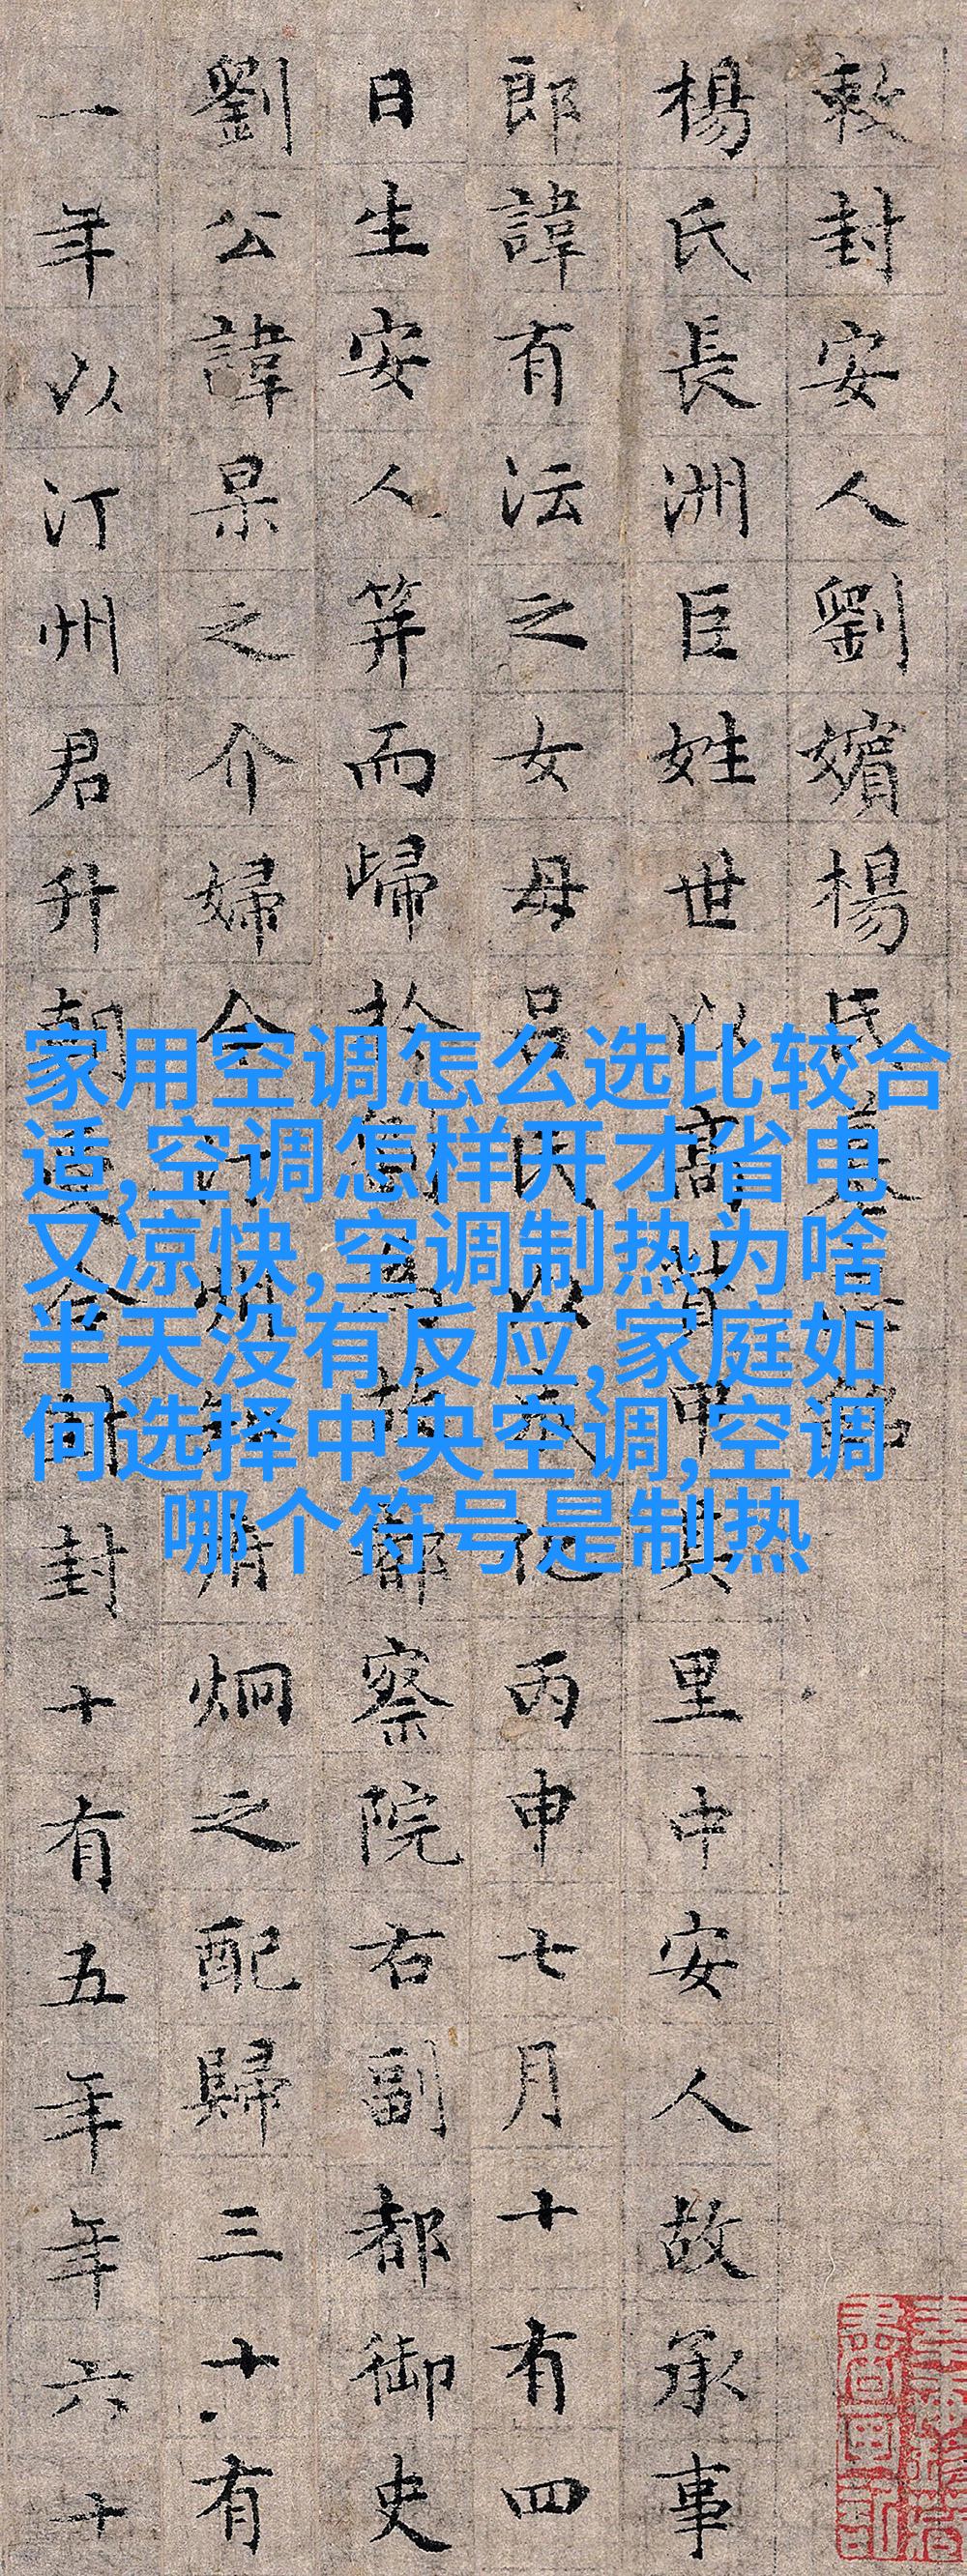 敕封安人劉嬪楊氏墓銘
楊氏長洲巨姓世以高貲甲其里中安人故承事
郎諱有沄之女母呂氏以化丙申七月十有四
日生安人笄而歸於故都察院右副都御史
劉公諱杲之介婦今州炯之配歸三十有
一年以汀州君升朝封十有五年年六十
家用空调怎么选比较合
适,空调怎样开才省电
又凉快,空调制热为啥
半天没有反应,家庭如
何选择中央空调,空调
哪个符号是制热